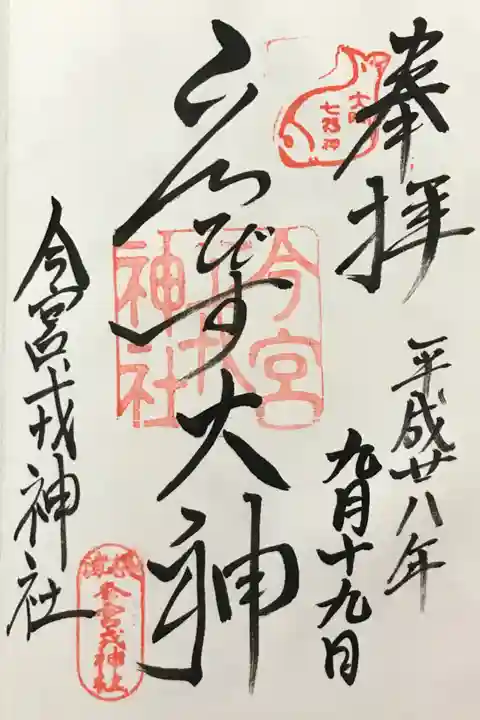 奉拝
平成廿八年
九月十九日
大阪
七福神
ゑびす大神
今宮
戎
神社
今宮戎神社
今宮戎神社